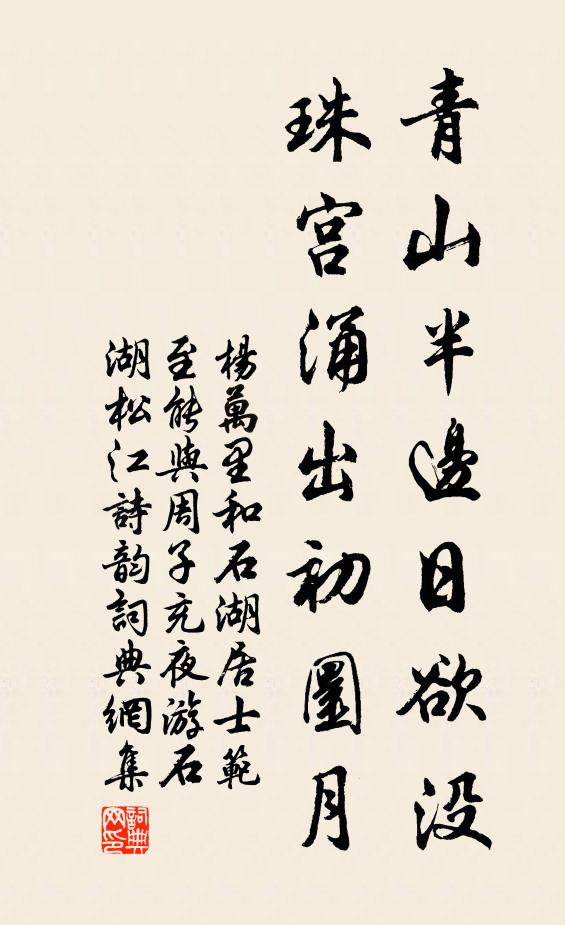 青山半邊日欲没
珠宫涌出初圓月
楊萬里和石湖居士範
至能與周子充夜游石
湖松江詩韵詞典網集
詞典
网印